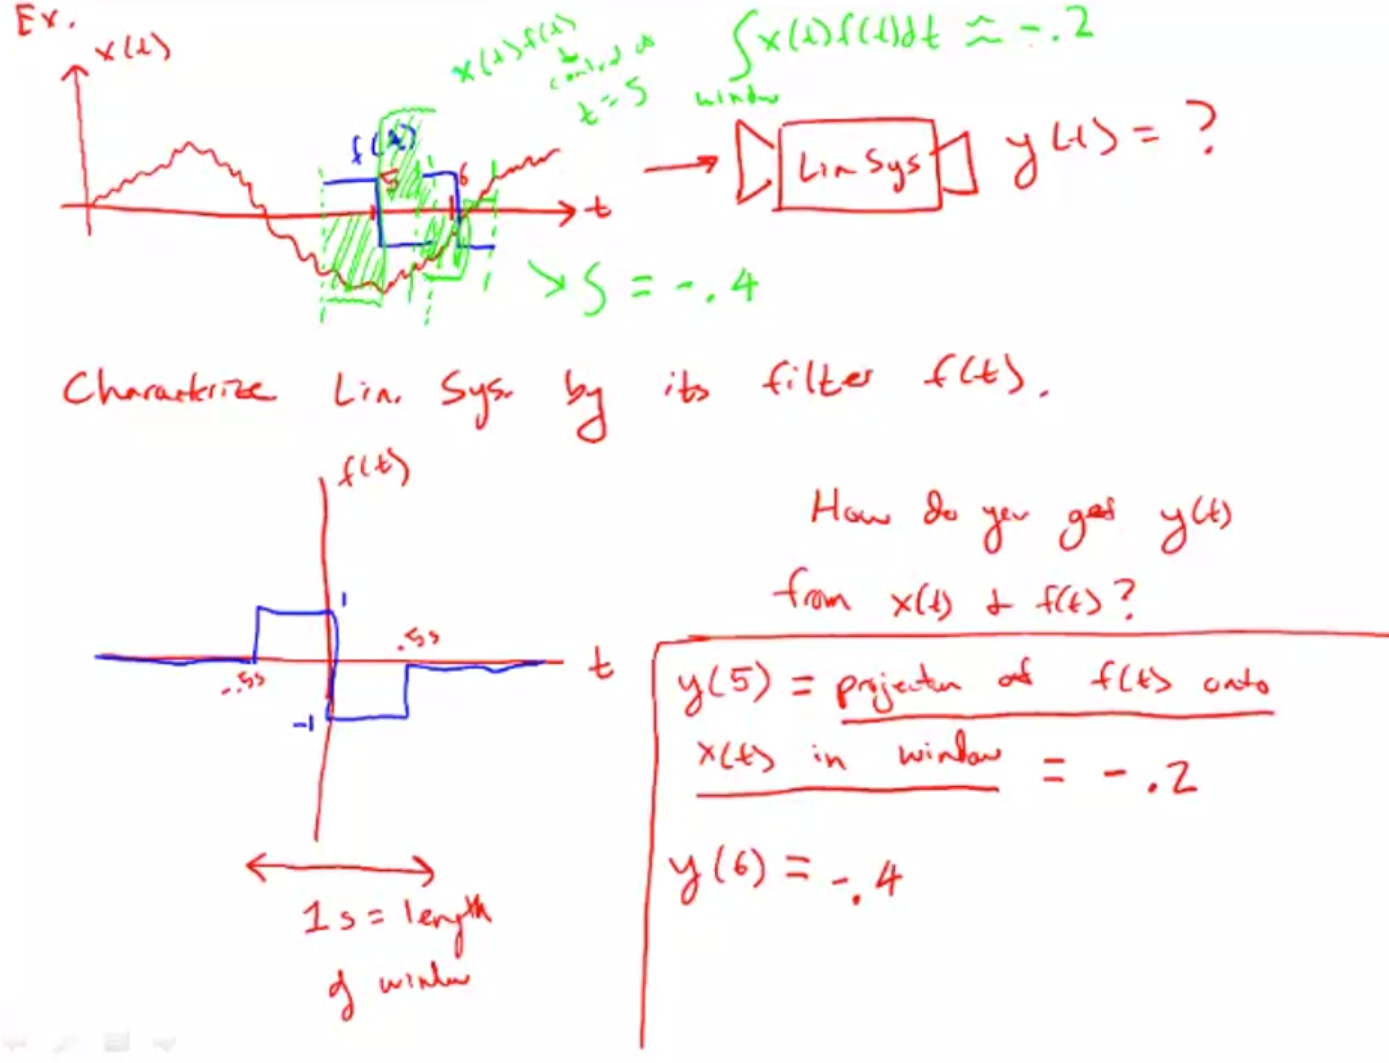 Ex.
x(t)
x(t)f(t)
centered at
t=5
∫x(t)f(t)dt ≈ -.2
window
f(t)
5
6
t
Lin Sys
y(t) = ?
∫ = -.4
Characterize Lin. Sys. by its filter f(t).
f(t)
1
-.5s
.5s
t
-1
1s = length
of window
How do you get y(t)
from x(t) & f(t)?
y(5) = projection of f(t) onto
x(t) in window = -.2
y(6) = -.4